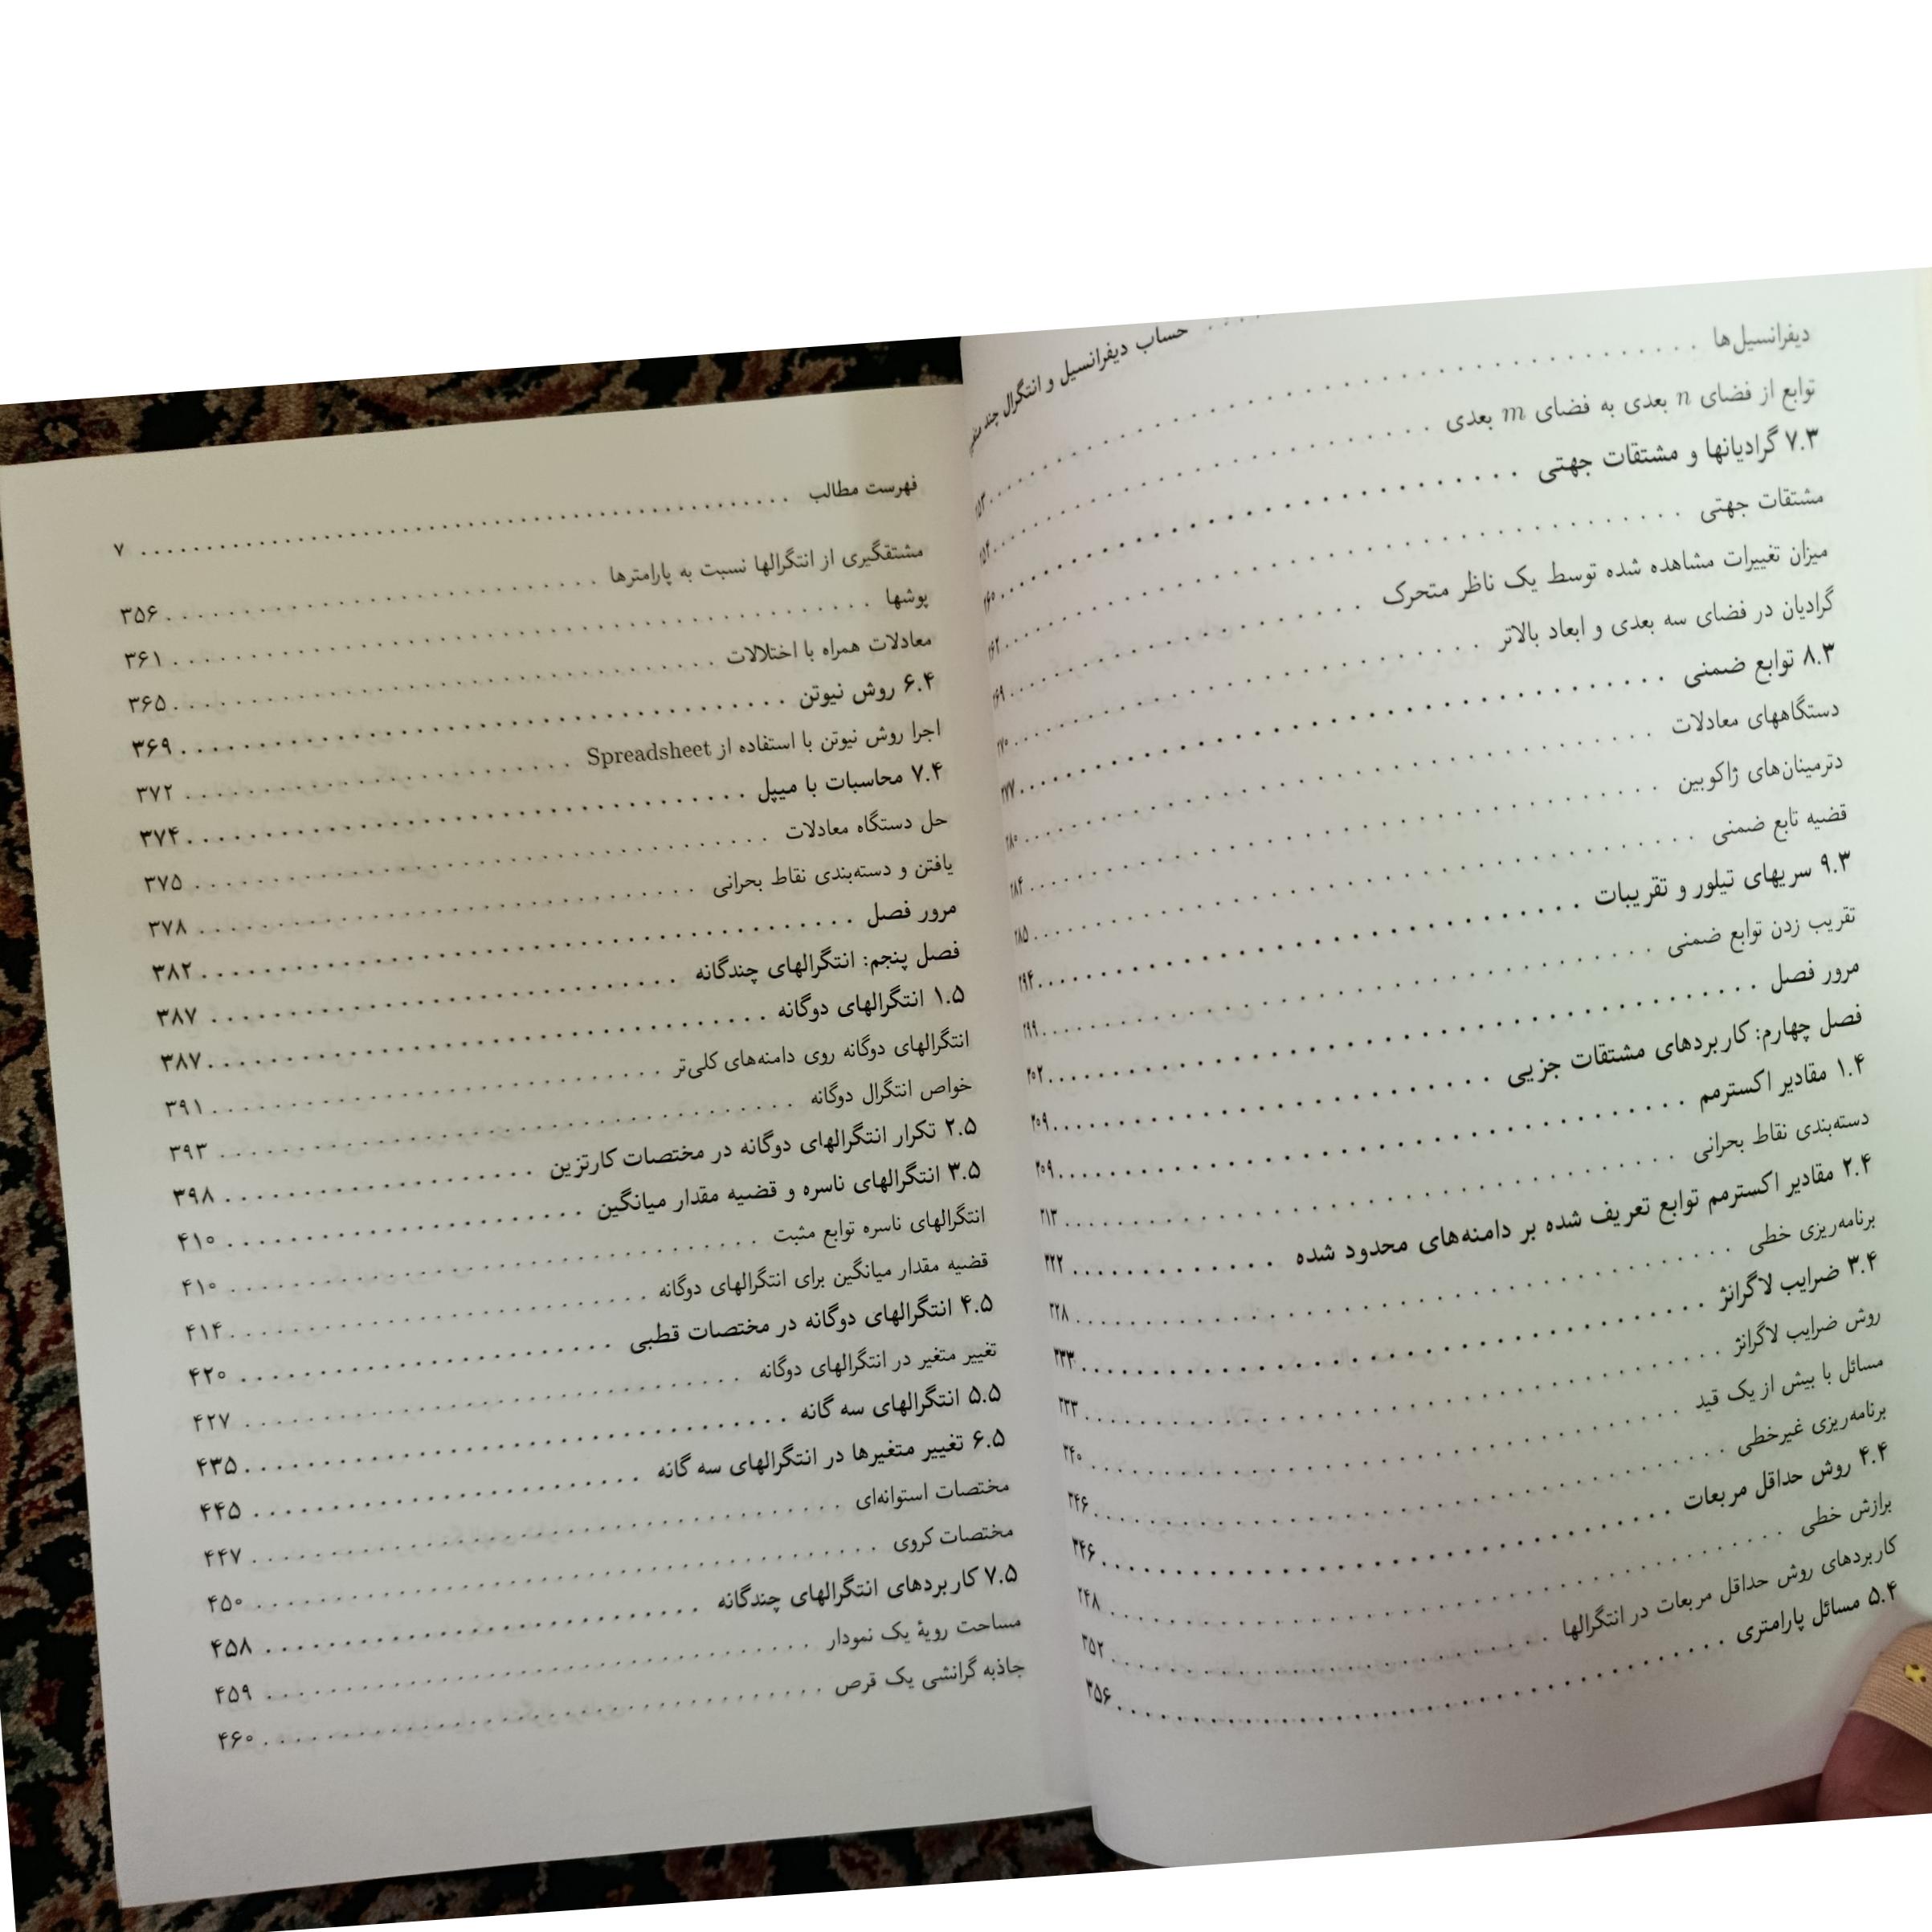 حساب دیفرانسیل و انتگرال چند
دیفرانسیل‌ها
توابع از فضای n بعدی به فضای m بعدی
۷.۳ گرادیانها و مشتقات جهتی
مشتقات جهتی
میزان تغییرات مشاهده شده توسط یک ناظر متحرک
گرادیان در فضای سه بعدی و ابعاد بالاتر
۸.۳ توابع ضمنی
دستگاههای معادلات
دترمینان‌های ژاکوبین
قضیه تابع ضمنی
۹.۳ سریهای تیلور و تقریبات
تقریب زدن توابع ضمنی
مرور فصل
فصل چهارم: کاربردهای مشتقات جزیی
۱.۴ مقادیر اکسترمم
دسته‌بندی نقاط بحرانی
۲.۴ مقادیر اکسترمم توابع تعریف شده بر دامنه‌های محدود شده
برنامه‌ریزی خطی
۳.۴ ضرایب لاگرانژ
روش ضرایب لاگرانژ
مسائل با بیش از یک قید
برنامه‌ریزی غیرخطی
۴.۴ روش حداقل مربعات
برازش خطی
کاربردهای روش حداقل مربعات در انتگرالها
۵.۴ مسائل پارامتری ۳۵۶
فهرست مطالب ۷
مشتقگیری از انتگرالها نسبت به پارامترها ۳۵۶
پوشها ۳۶۱
معادلات همراه با اختلالات ۳۶۵
۶.۴ روش نیوتن ۳۶۹
اجرا روش نیوتن با استفاده از Spreadsheet ۳۷۲
۷.۴ محاسبات با میپل ۳۷۴
حل دستگاه معادلات ۳۷۵
یافتن و دسته‌بندی نقاط بحرانی ۳۷۸
مرور فصل ۳۸۲
فصل پنجم: انتگرالهای چندگانه ۳۸۷
۱.۵ انتگرالهای دوگانه ۳۸۷
انتگرالهای دوگانه روی دامنه‌های کلی‌تر ۳۹۱
خواص انتگرال دوگانه ۳۹۳
۲.۵ تکرار انتگرالهای دوگانه در مختصات کارتزین ۳۹۸
۳.۵ انتگرالهای ناسره و قضیه مقدار میانگین ۴۱۰
انتگرالهای ناسره توابع مثبت ۴۱۰
قضیه مقدار میانگین برای انتگرالهای دوگانه ۴۱۴
۴.۵ انتگرالهای دوگانه در مختصات قطبی ۴۲۰
تغییر متغیر در انتگرالهای دوگانه ۴۲۷
۵.۵ انتگرالهای سه گانه ۴۳۵
۶.۵ تغییر متغیرها در انتگرالهای سه گانه ۴۴۵
مختصات استوانه‌ای ۴۴۷
مختصات کروی ۴۵۰
۷.۵ کاربردهای انتگرالهای چندگانه ۴۵۸
مساحت رویۀ یک نمودار ۴۵۹
جاذبه گرانشی یک قرص ۴۶۰